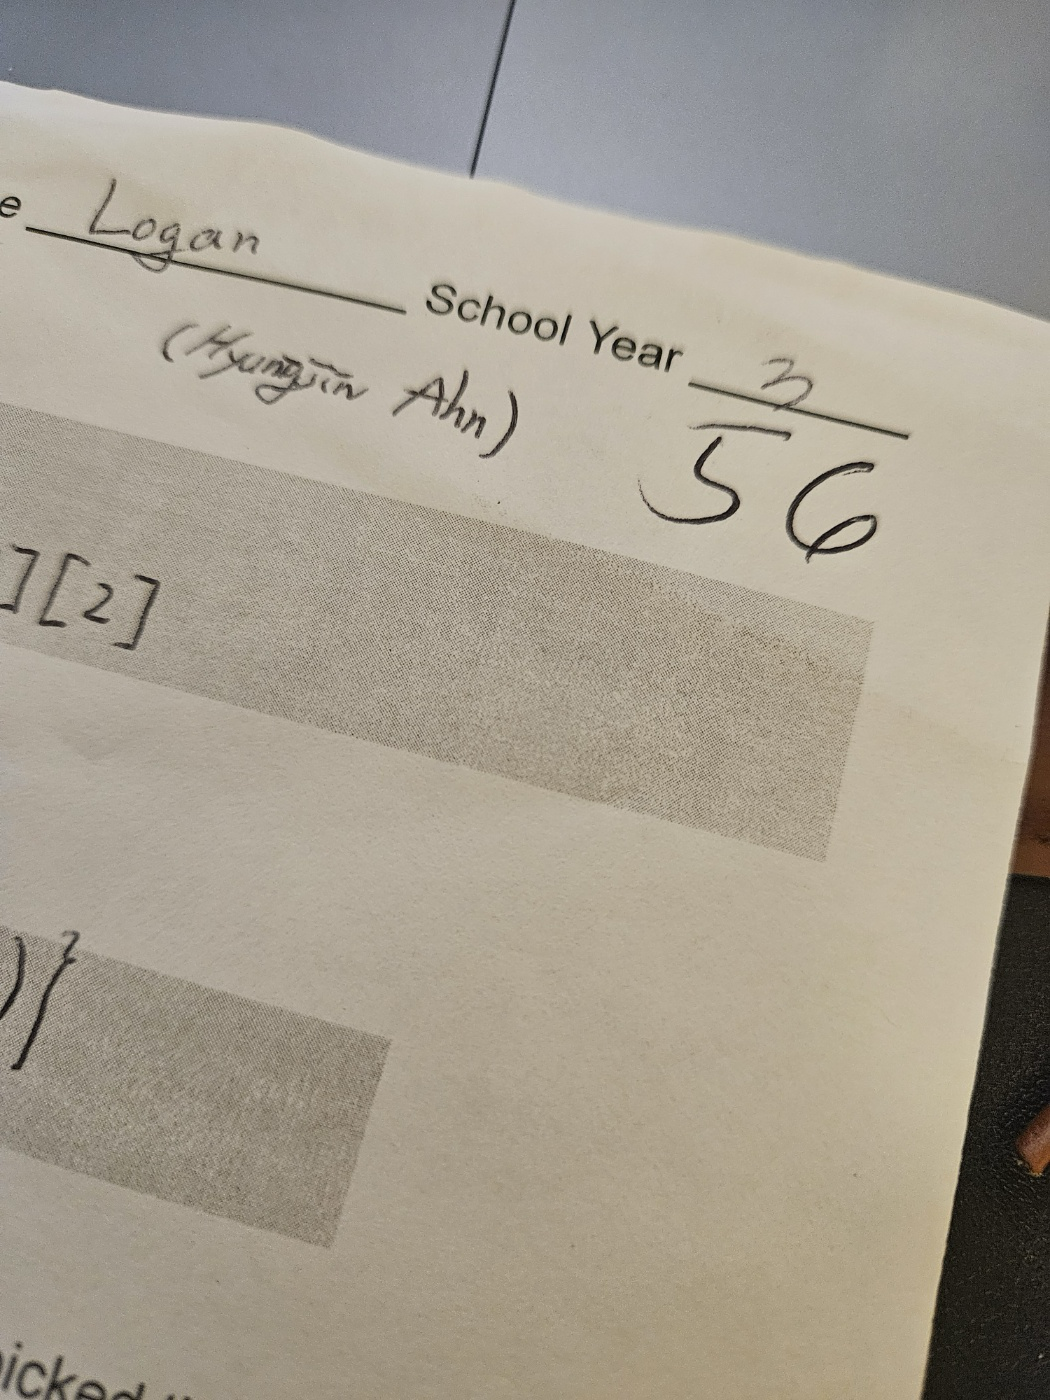 e Logan School Year 3
(Hyungjin Ahn)
56
][2]
)}
icked